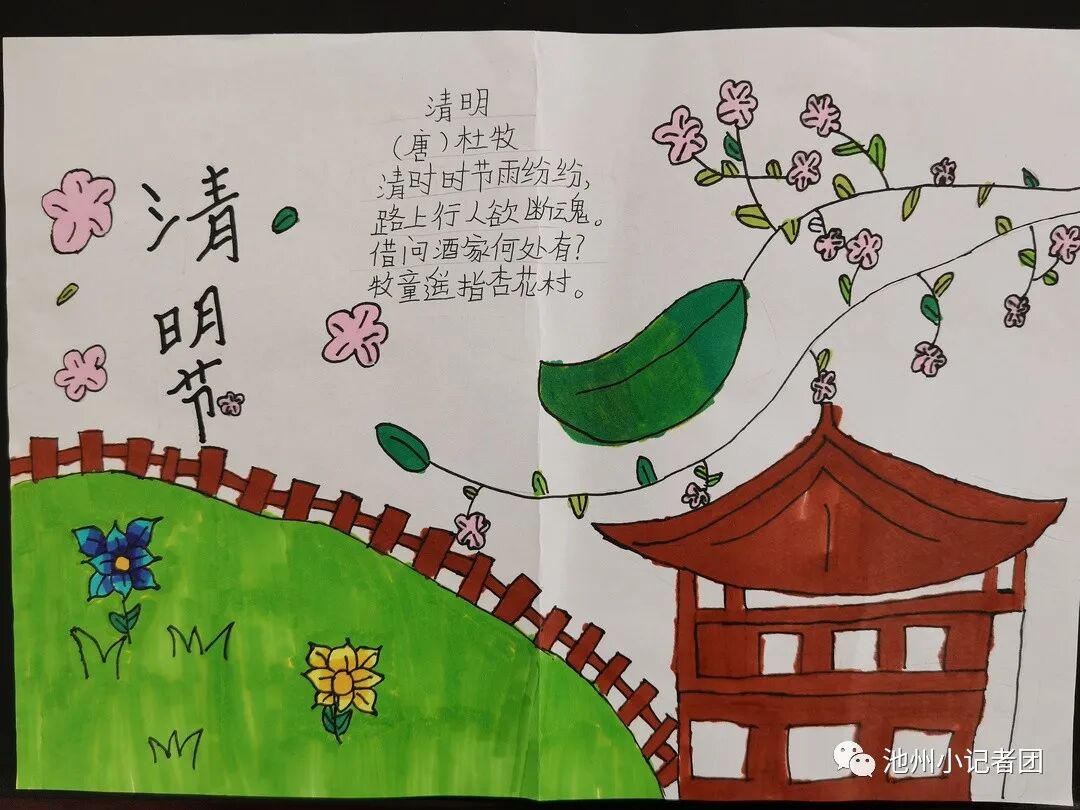 清明节
清明
（唐）杜牧
清时时节雨纷纷，
路上行人欲断魂。
借问酒家何处有？
牧童遥指杏花村。
池州小记者团